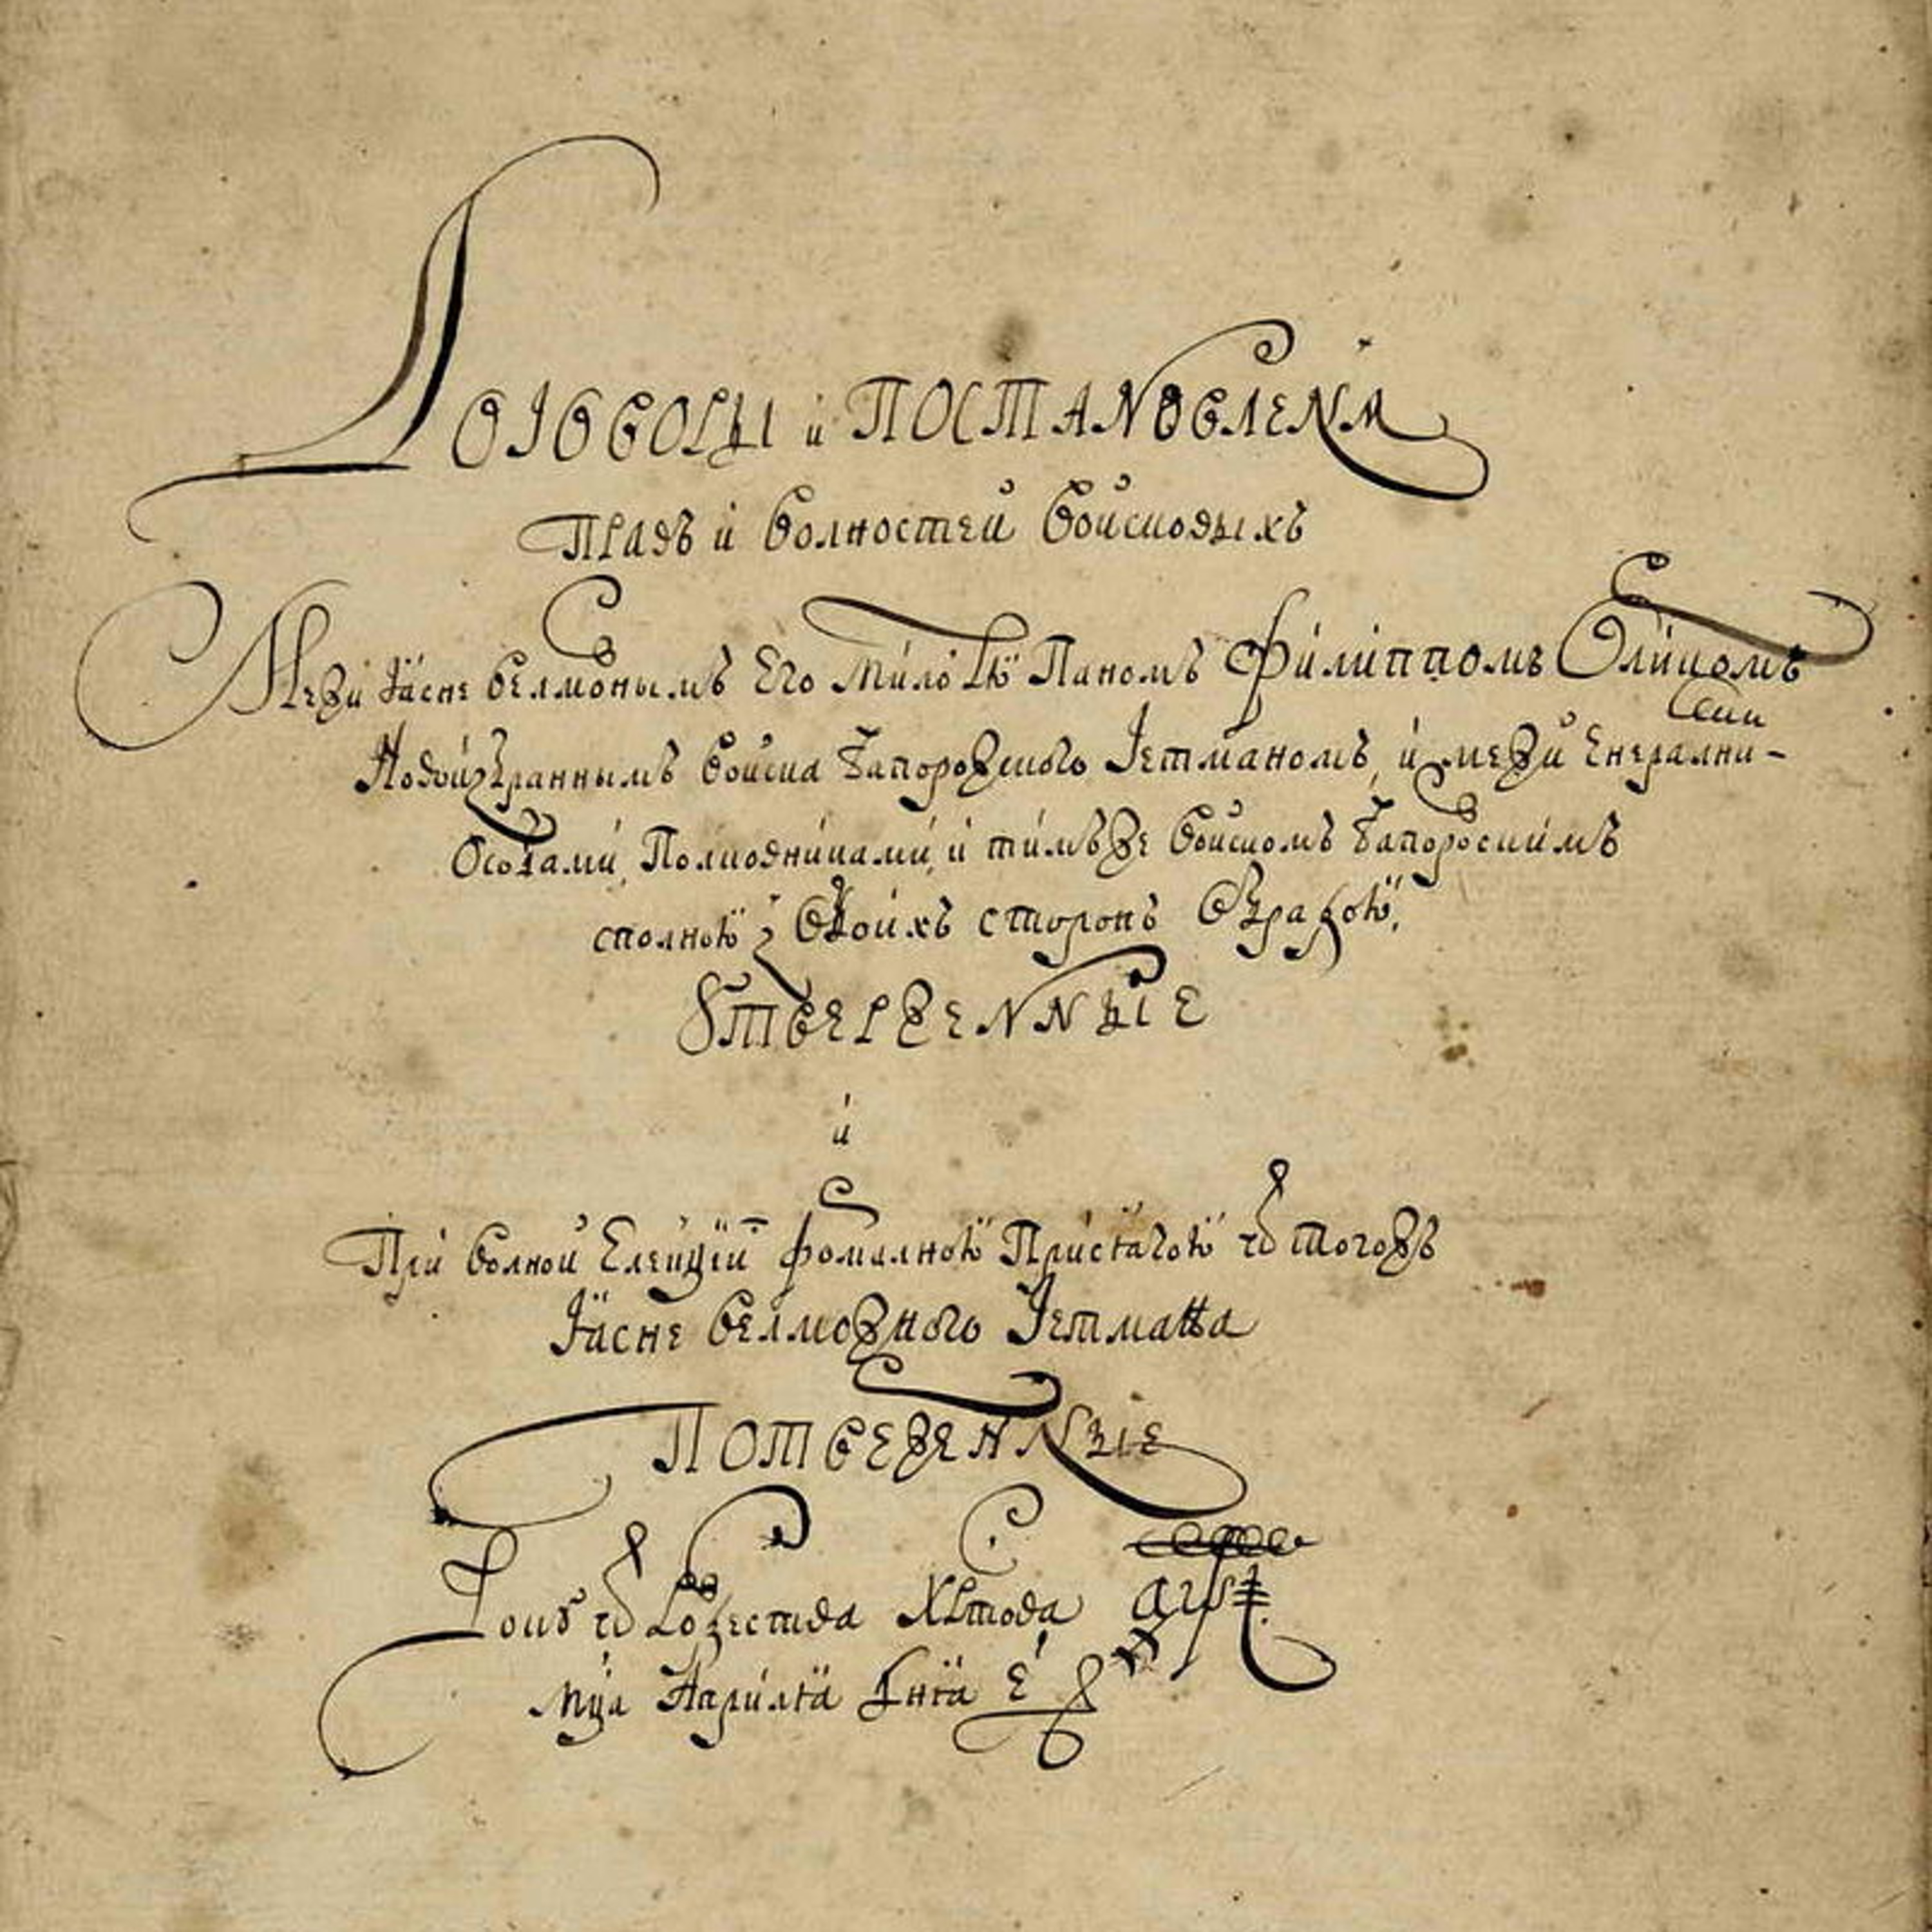 Договоры и Постановленя
Правъ и волностей Войсковыхъ
Межи Ясне велможнымъ Его милостю Паномъ Филиппомъ Орликомъ
Новоизбраннымъ Войска Запорожского Гетманомъ, и межи Енералними
Особами, Полковниками, и тимъже Войскомъ Запорожскимъ
сполною з обоихъ сторонъ обрадою,
Утверженные
и
При волной Елекціи формалною Присягою ѿ тогожъ
Ясне велможного Гетмана
Потверженные
Року ѿ Рожества Христова ҂аѱі.
мца Априля дня е҃